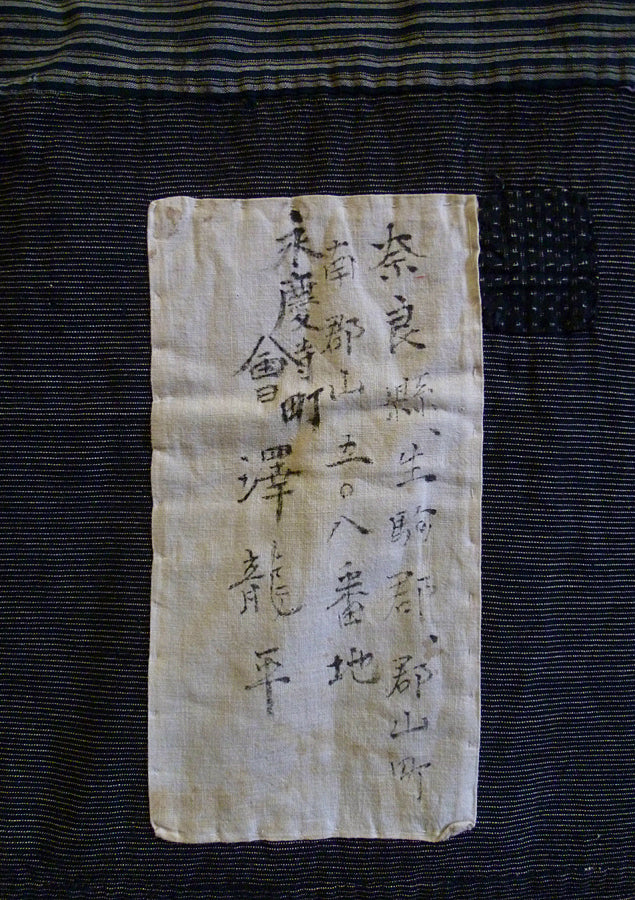 奈良縣、生駒郡、郡山町
南郡山五〇八番地
永慶寺町
會澤龍平